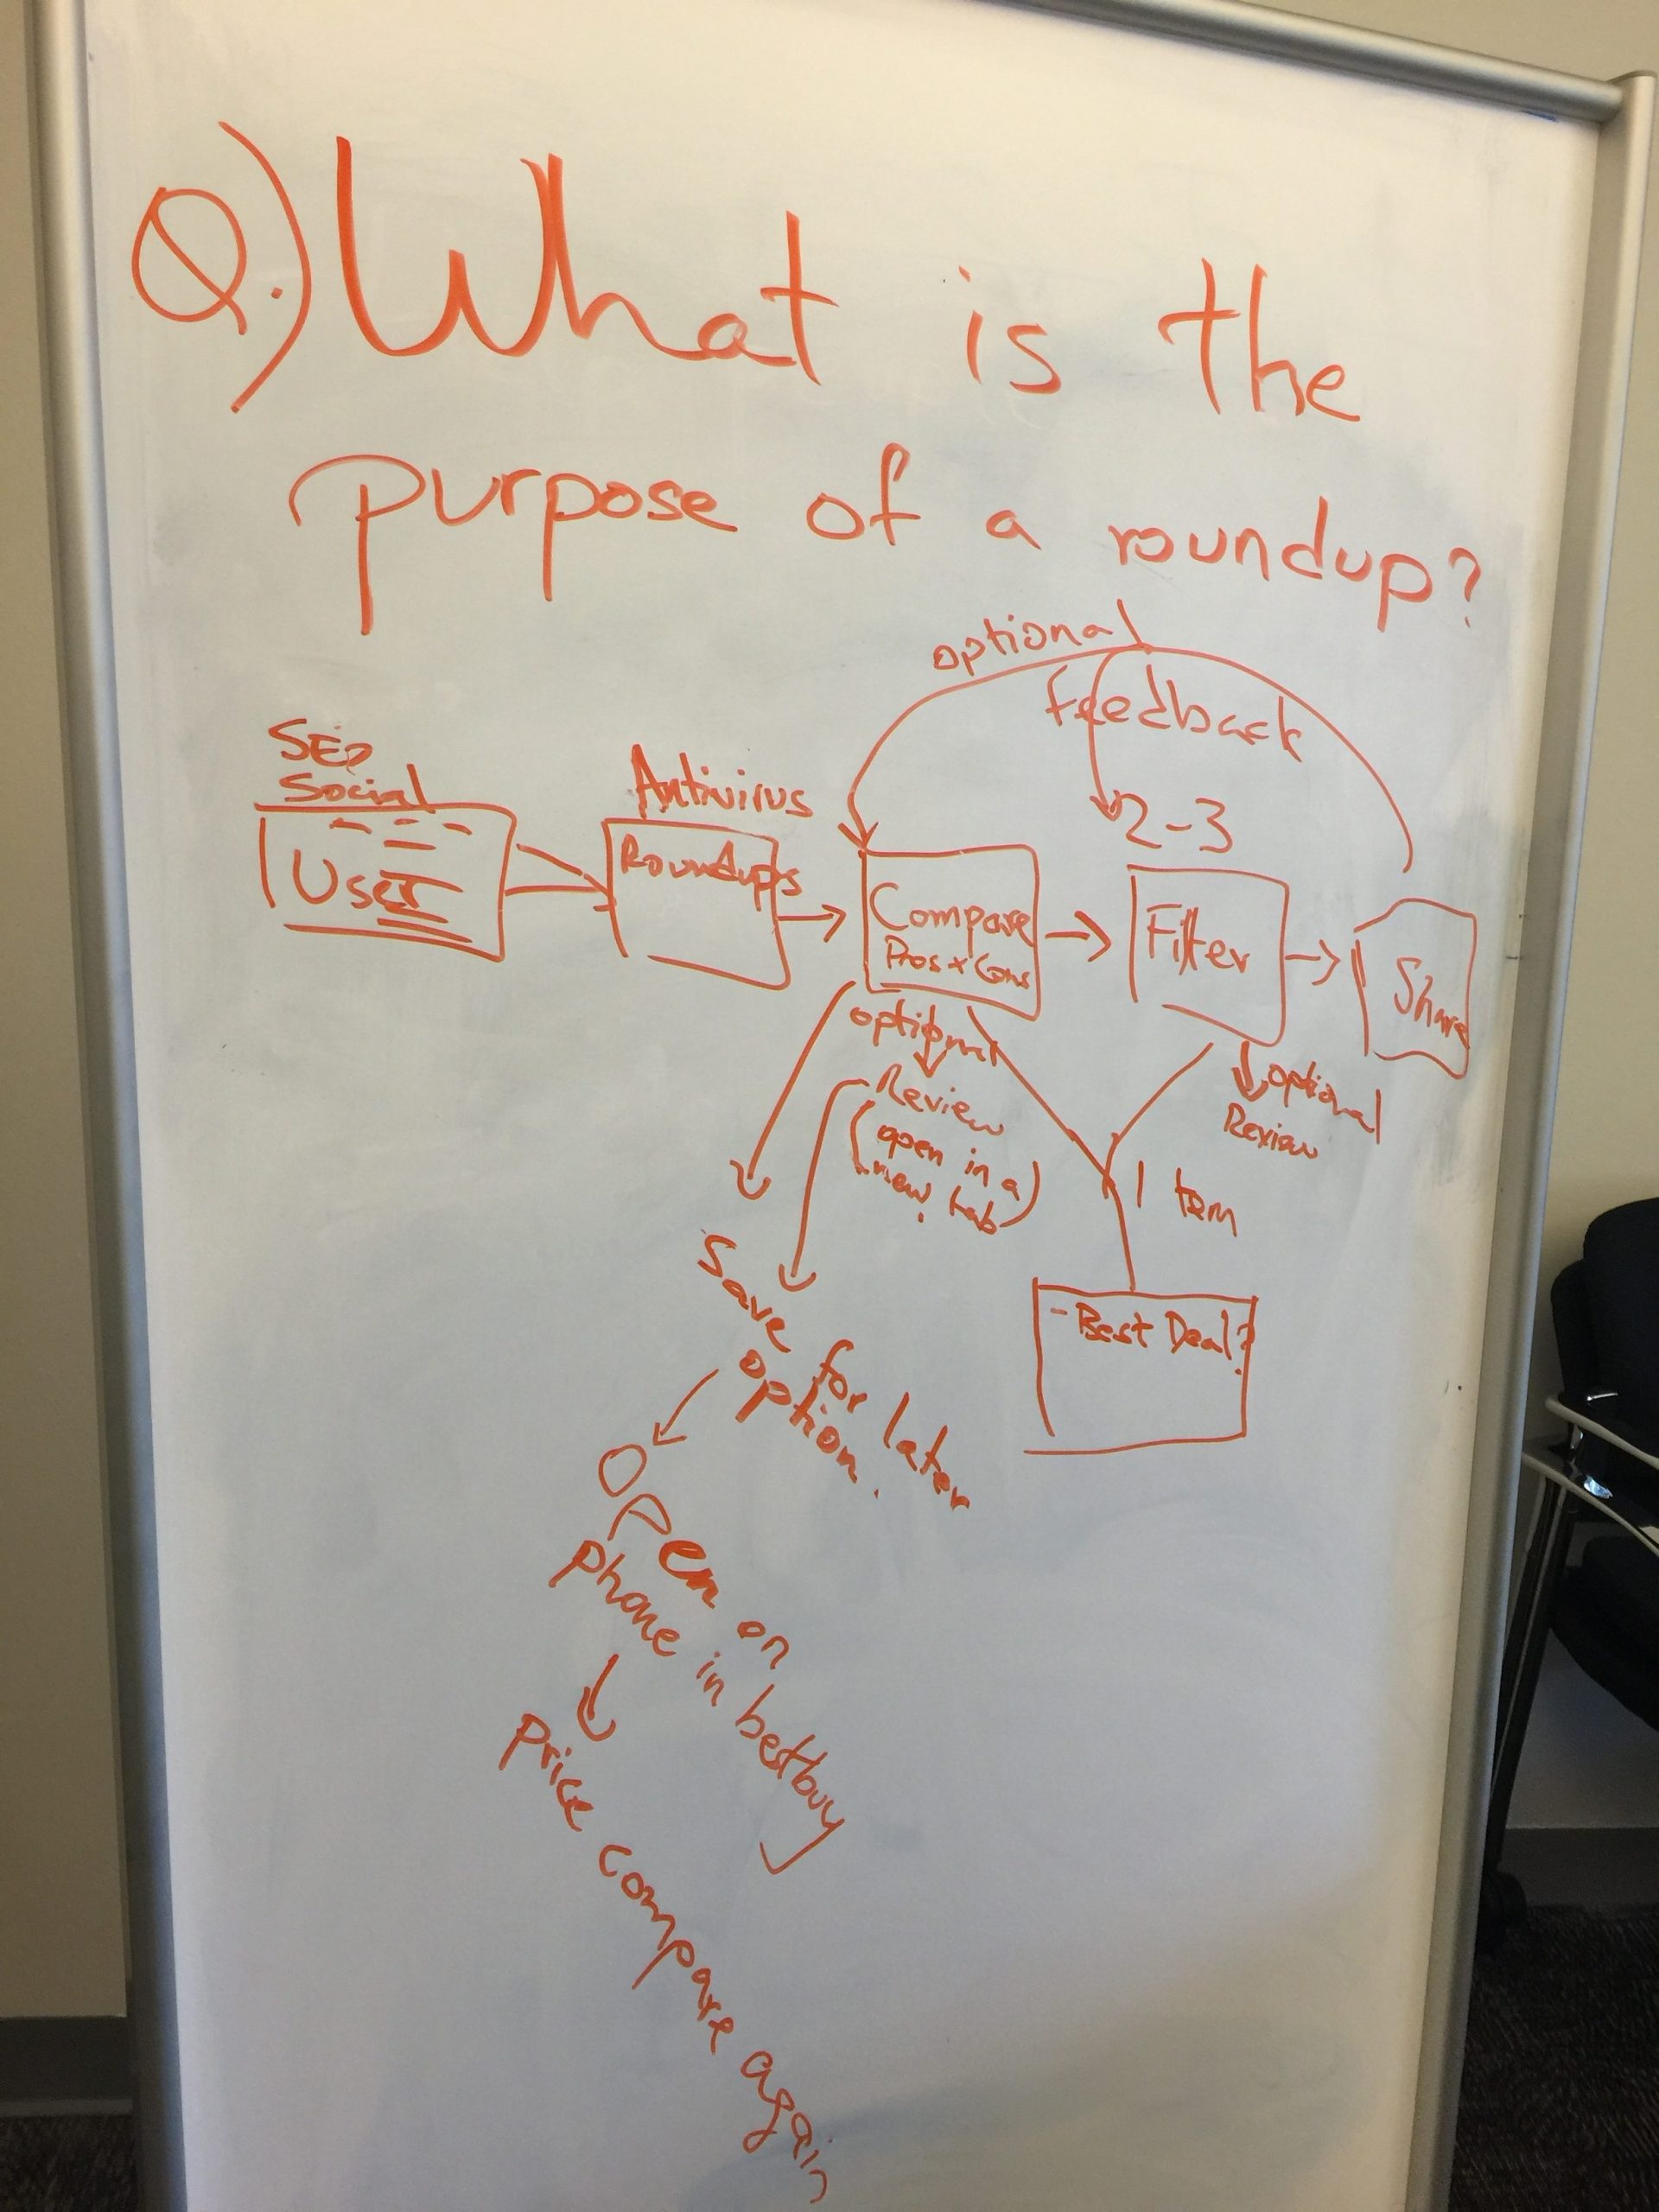 Q.) What is the
purpose of a roundup?
optional
Feedback
SEO
Social
User
Antivirus
Roundups
2-3
Compare
Pros + Cons
Filter
Share
optional
Review
(open in a
new tab)
optional
Review
1 tem
- Best Deal?
Save for later
option.
Open on
phone in bestbuy
price compare again